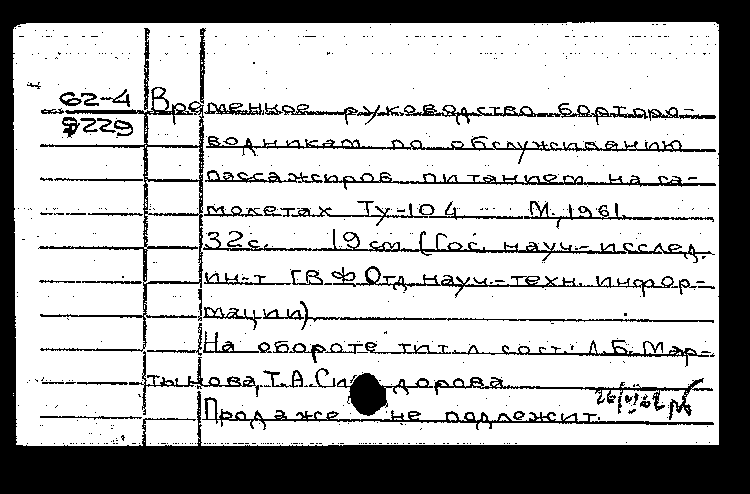 62-4 Временное руководство бортпро-
9229
водникам по обслуживанию
пассажиров питанием на са-
молетах Ту-104 М., 1961.
32 с. 19 см (Гос. науч.-исслед.
ин-т ГВФ Отд. науч.-техн. инфор-
мации).
На обороте тит. л. сост.: Л.Б. Мар-
тынова, Т.А. Сидорова
Продаже не подлежит.